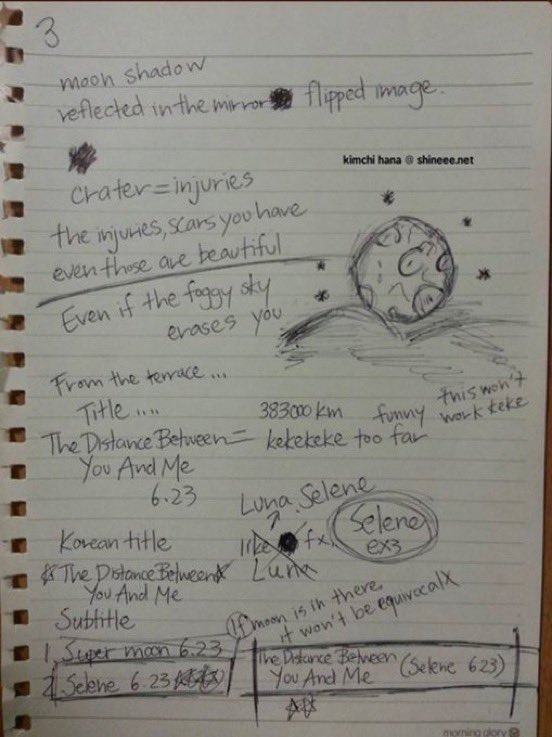 3
moon shadow
reflected in the mirror flipped image.
kimchi hana @ shineee.net
crater = injuries
the injuries, scars you have
even those are beautiful
Even if the foggy sky
erases you
From the terrace ...
this won't
Title .... 383000 km funny work keke
The Distance Between = kekekeke too far
You And Me
6.23
Luna, Selene
Korean title like fx. Selene
ex3
Luna
☆ The Distance Between ☆
You And Me
Subtitle
If moon is in there,
it won't be equivocal X
1. Super moon 6.23
2. Selene 6.23 ☆☆☆
The Distance Between (Selene 6.23)
You And Me
☆☆
morning glory